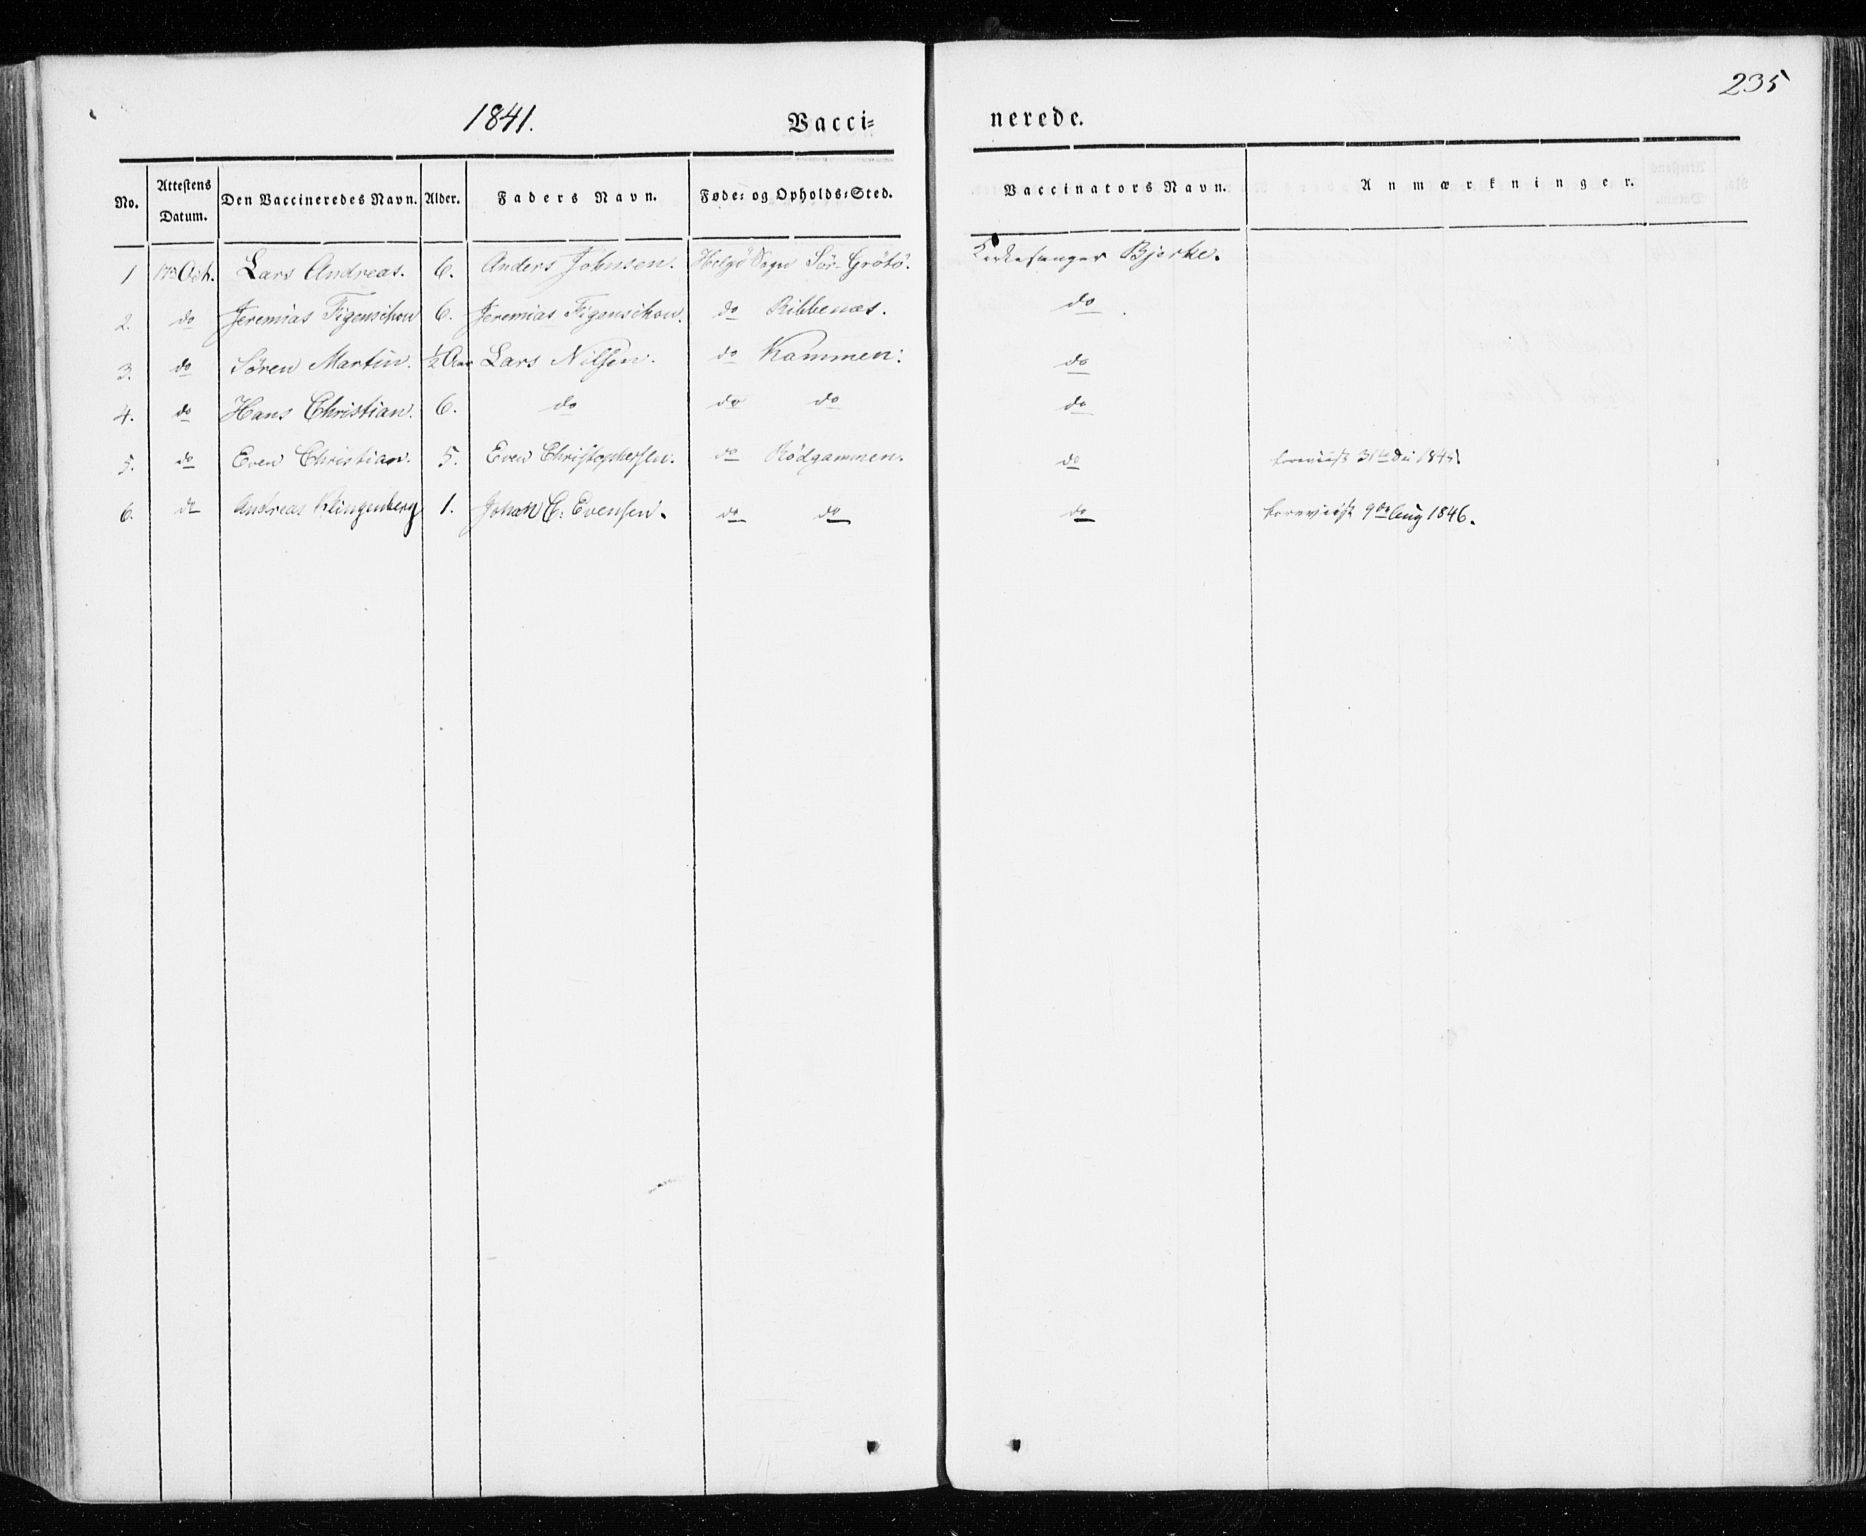 235
1841. Vacci= nerede.
No. Attestens Datum. Den Vaccineredes Navn. Alder. Faders Navn. Føde= og Opholds=Sted. Vaccinators Navn. Anmærkninger.
1 Oct. Lars Andreas. 6. Anders Johnsen. Helgö Sogn Sör-Grötö. Kirkesanger Bjerke.
2. do Jeremias Figenschou 6. Jeremias Figenschou. do Ribbenæs. do
3. do Søren Martin. ½ Aar Lars Nilsen. do Kammen. do
4. do Hans Christian. 6. do do do do
5. do Even Christian. 5. Even Christophersen. do Rödgammen. do foreviist 31te
6. do Andreas Klingenberg 1. Johan C: Evensen. do do do foreviist 9de Aug 1846.